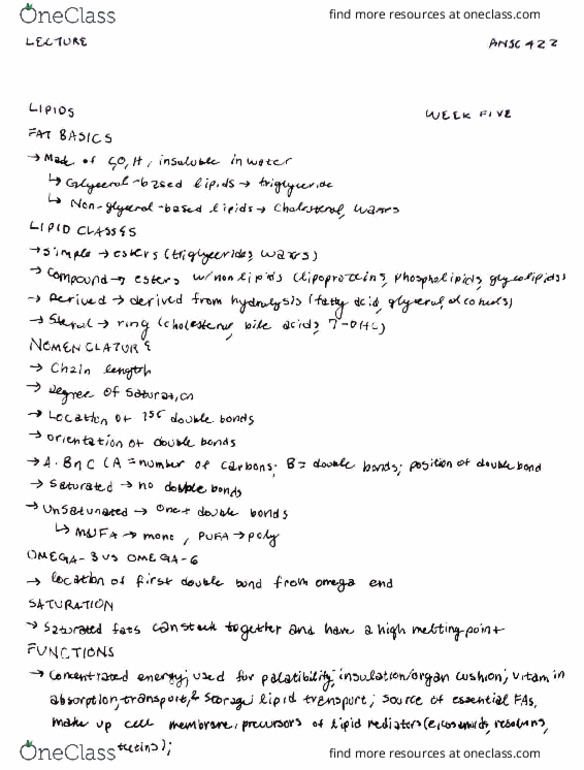 OneClass
find more resources at oneclass.com
LECTURE
ANSC 422
LIPIDS
WEEK FIVE
FAT BASICS
→ Made of C,O,H, insoluble in water
↳ Glyceral-based lipids → triglyceride
↳ Non-glyceral-based lipids → Cholesterol, waxes
LIPID CLASSES
→ Simple → esters (triglycerides, waxes)
→ Compound → esters w/ non lipids (lipoproteins, phospholipids, glycolipids)
→ Derived → derived from hydrolysis (fatty acid, glycerol, alcohols)
→ Sterol → ring (cholesterol, bile acids, 7-DHC)
NOMENCLATURE
→ Chain length
→ Degree of saturation
→ Location of 1st double bonds
→ orientation of double bonds
→ A:BnC (A = number of carbons; B = double bonds; position of double bond
→ Saturated → no double bonds
→ Unsaturated → one+ double bonds
↳ MUFA → mono, PUFA → poly
OMEGA-3 VS OMEGA-6
→ location of first double bond from omega end
SATURATION
→ Saturated fats can stack together and have a high melting point
FUNCTIONS
→ Concentrated energy; used for palatibility; insulation/organ cushion; vitamin
absorption, transport, & storage; lipid transport; source of essential FAs,
make up cell membrane; precursors of lipid mediators (eicosanoids, resolvins,
OneClass
find more resources at oneclass.com